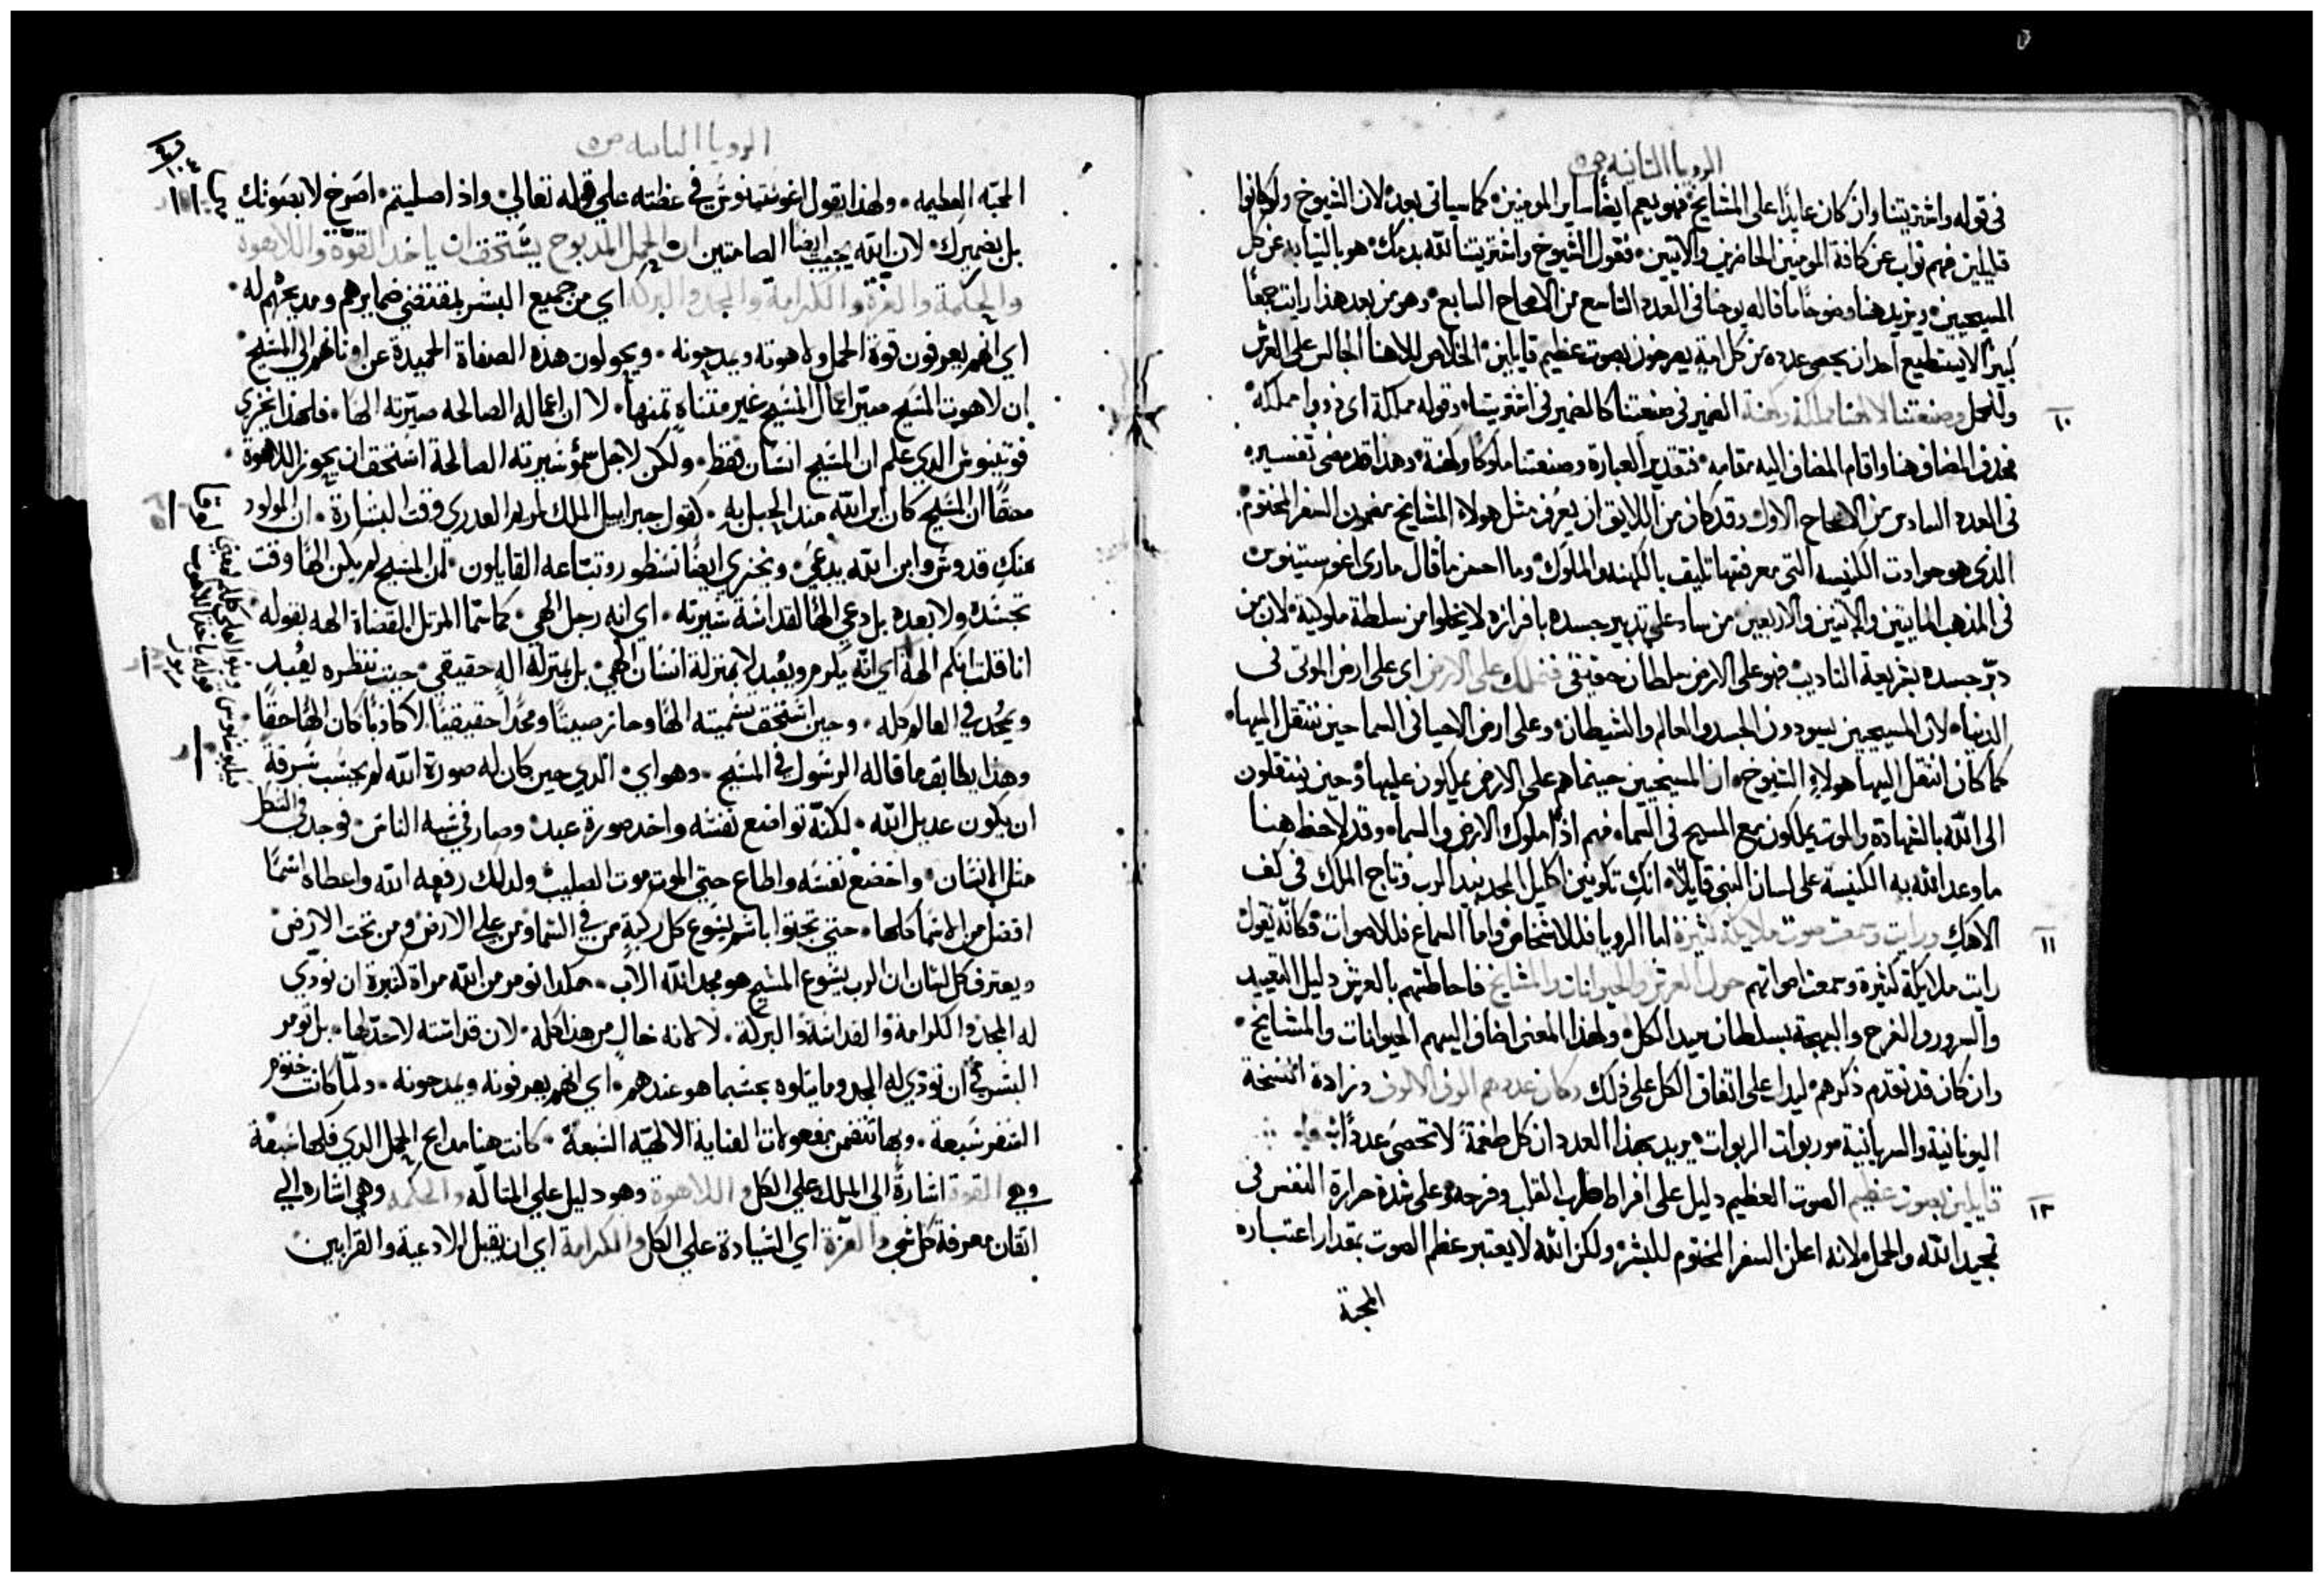 الرويا الثانيه ص٥
في قوله واشتريتنا وان كان عايدًا على المشايخ فهو يعم ايضًا ساير المومنين كما سياتي بعده لان الشيوخ ولو كانوا
قليلين فهم نواب عن كافة المومنين الحاضرين والاتيين فقول الشيوخ واشتريتنا لله بدمك هو بالنيابه عن كل
المسيحيين ويزيد هنا وضوحًا ما قاله يوحنا في العدد التاسع من الاصحاح السابع وهو من بعد هذا رايت جمعًا
كبيرًا لا يستطيع احد ان يحصي عدده من كل امة يصرخون بصوت عظيم قايلين الخلاص لالاهنا الجالس على العرش
١٠ وللحمل وصنعتنا لالاهنا مملكة وكهنة الضمير في صنعتنا كالضمير في اشتريتنا وقوله مملكة اي ذووا مملكة
فحذف المضاف هنا واقام المضاف اليه مقامه فتقدير العبارة وصنعتنا ملوكًا وكهنة وهذا قد مضى تفسيره
في العدد السادس من الاصحاح الاول وقد كان من اللايق ان يعرف مثل هولاء المشايخ مضمون السفر المختوم
الذي هو حوادث الكنيسه التي معرفتها تليق بالكهنه والملوك وما احسن ما قال ماري اغوستينوس
في المذهب المايتين والاثنين والاربعين من ساد على تدبير جسده بافرازه لا يخلوا من سلطة ملوكية لان من
دبّر جسده بشريعة التاديب فهو على الارض سلطان حقيقي فنملك على الارض اي على ارض الموتى في
الدنيا لان المسيحيين يسودون الجسد والعالم والشيطان وعلى ارض الاحيا في السما حين ننتقل اليها
كما كان انتقل اليها هولاء الشيوخ ان المسيحيين حينما هم على الارض يملكون عليها وحين ينتقلون
الى الله بالشهادة والموت يملكون مع المسيح في السماء فهم اذًا ملوك الارض والسماء وقد لاحظ هنا
ما وعد الله به الكنيسة على لسان النبي قايلاً انكِ تكونين اكليل المجد بيد الرب وتاج الملك في كف
١١ الاهكِ ورايت وسمعت صوت ملايكة كثيرة اما الرويا فللاشخاص واما السماع فللاصوات فكانه يقول
رايت ملايكة كثيرة وسمعت اصواتهم حول العرش والحيوانات والمشايخ فاحاطتهم بالعرش دليل التعييد
والسرور والفرح والبهجة بسلطان سيد الكل ولهذا المعنى اضاف اليهم الحيوانات والمشايخ
وان كان قد تقدم ذكرهم ليدل على اتفاق الكل على ذلك وكان عددهم الوف الالوف وزادة النسخة
اليونانية والسريانية وربوات الربوات يريد بهذا العدد ان كل طغمة لا تحصى عددًا
١٢ قايلين بصوت عظيم الصوت العظيم دليل على افراط طرب القلب وفرحه وعلى شدة حرارة النفس في
تمجيد الله والحمل لانه اعلن السفر المختوم للبشر ولكن الله لا يعتبر عظم الصوت بمقدار اعتباره
المحبة
الرويا الثانيه ص٥
المحبّه العظيمه ولهذا يقول اغوستينوس في عظته علي قوله تعالي واذا صليتم اصرخ لا بصوتك
بل بضميرك لان الله يجيب ايضًا الصامتين ان الحمل المدبوح يستحق ان ياخد القوّة واللاهوة
والحكمة والعزة والكرامة والمجد والبركة اي من جميع البشر بمقتضي ضمايرهم ومديحهم له
اي انهم يعرفون قوة الحمل ولاهوته ويمدحونه ويحولون هذه الصفاة الحميدة عن اوثانهم الي المسيح
ان لاهوت المسيح صيّر اعمال المسيح غير متناهٍ ثمنها لا ان اعماله الصالحه صيّرته الهًا فلهذا يخزي
فوتينوس الدي علم ان المسيح انسان فقط ولكن لاجل سمو سيرته الصالحة استحق ان يحوز اللاهوة
حقًا ان المسيح كان ابن الله مند الحبل به كقول جبراييل الملك لمريم العدري وقت البشارة ان المولود
منك قدوس وابن الله يدعي ويخزي ايضًا نسطور وتباعه القايلون ان المسيح لم يكن الهًا وقت
تجسده ولا بعده بل دعي الهًا لقداسة سيرته اي انه رجل الهي كما سمّا المرتل القضاة الهه بقوله
انا قلت انكم الهة اي انه يكرم ويعبد لا بمنزلة انسان الهي بل بمنزلة اله حقيقي حيت ننظره يعبد
ويمجد في العالم كله وحين استحق تسميته الهًا وحاز صيتًا ومجدًا حقيقيًا لا كادبًا كان الهًا حقًا
وهدا يطابق ما قاله الرسول في المسيح وهو اي الدي حين كان له صورة الله لم يحسب سرقة
ان يكون عديل الله لكنّه تواضع نفسه واخد صورة عبد وصار في شبه الناس فوجد في الشكل
متل الانسان واخضع نفسه واطاع حتي الموت موت الصليب ولدلك رفعه الله واعطاه اسمًا
افضل من الاسما كلها حتي تجتوا باسم يسوع كل ركبة من في السما ومن علي الارض ومن تحت الارض
ويعترف كل لسان ان الرب يسوع المسيح هو مجد الله الاب هكدا نومر من الله مراة كتيرة ان نودّي
له المجد والكرامة والقداسة والبركة لا لانه خالٍ من هذا كله لان قداسته لاحدّ لها بل نومر
البشر في ان نودّي له المجد وما يتلوه بحسبما هو عندهم اي انهم يعرفونه ويمدحونه ولمّا كانت ختوم
السفر سبعة وبها تتضمن مفعولات العناية الالهيّه السبعة كانت هنا مدايح الحمل الدي فكها سبعة
وهي القوة اشارةً الي الملك علي الكل واللاهوة وهو دليل علي المتالّه والحكمه وهي اشاره الي
اتقان معرفة كل شي والعزّة اي السيادة علي الكل والكرامة اي ان يقبل الادعية والقرابين